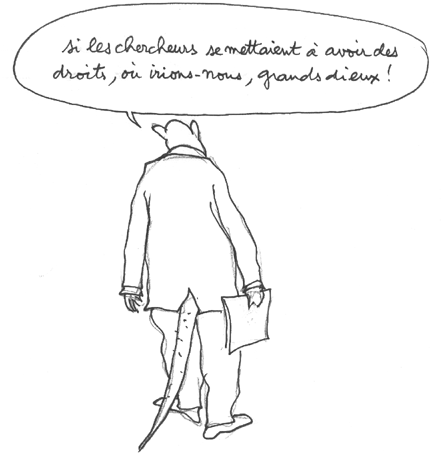 si les chercheurs se mettaient à avoir des
droits, où irions-nous, grands dieux !